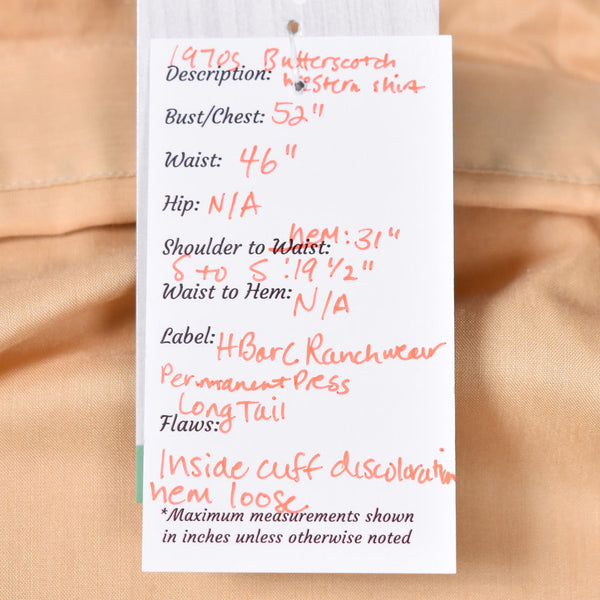 1970s Butterscotch
Description: Western shirt
Bust/Chest: 52"
Waist: 46"
Hip: N/A
Shoulder to Waist: hem: 31"
S to S: 19 1/2"
Waist to Hem: N/A
Label: H Bar C Ranchwear
Permanent Press
Long Tail
Flaws:
Inside cuff discoloration
hem loose
*Maximum measurements shown
in inches unless otherwise noted